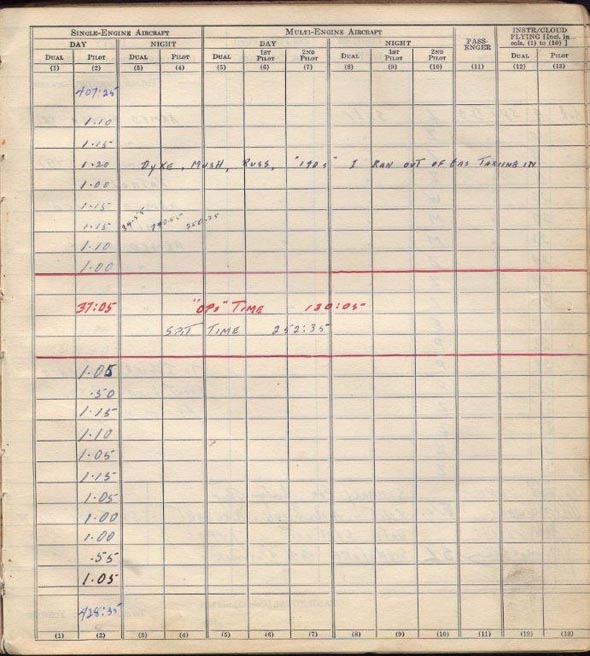 SINGLE-ENGINE AIRCRAFT MULTI-ENGINE AIRCRAFT PASS-ENGER INSTR/CLOUD FLYING [Incl. in cols. (1) to (10) ]
DAY NIGHT DAY NIGHT
DUAL PILOT DUAL PILOT DUAL 1ST PILOT 2ND PILOT DUAL 1ST PILOT 2ND PILOT DUAL PILOT
(1) (2) (3) (4) (5) (6) (7) (8) (9) (10) (11) (12) (13)
407:25
1.10
1.15
1.20 DYKE, MUSH, RUSS, "190s" I RAN OUT OF GAS TAXIING IN
1.00
1.15
1.15
1.10
1.00
37:05 "OPS" TIME 130:05
SPIT TIME 252:35
1.05
.50
1.15
1.10
1.05
1.15
1.05
1.00
1.00
.55
1.05
428:35
(1) (2) (3) (4) (5) (6) (7) (8) (9) (10) (11) (12) (13)